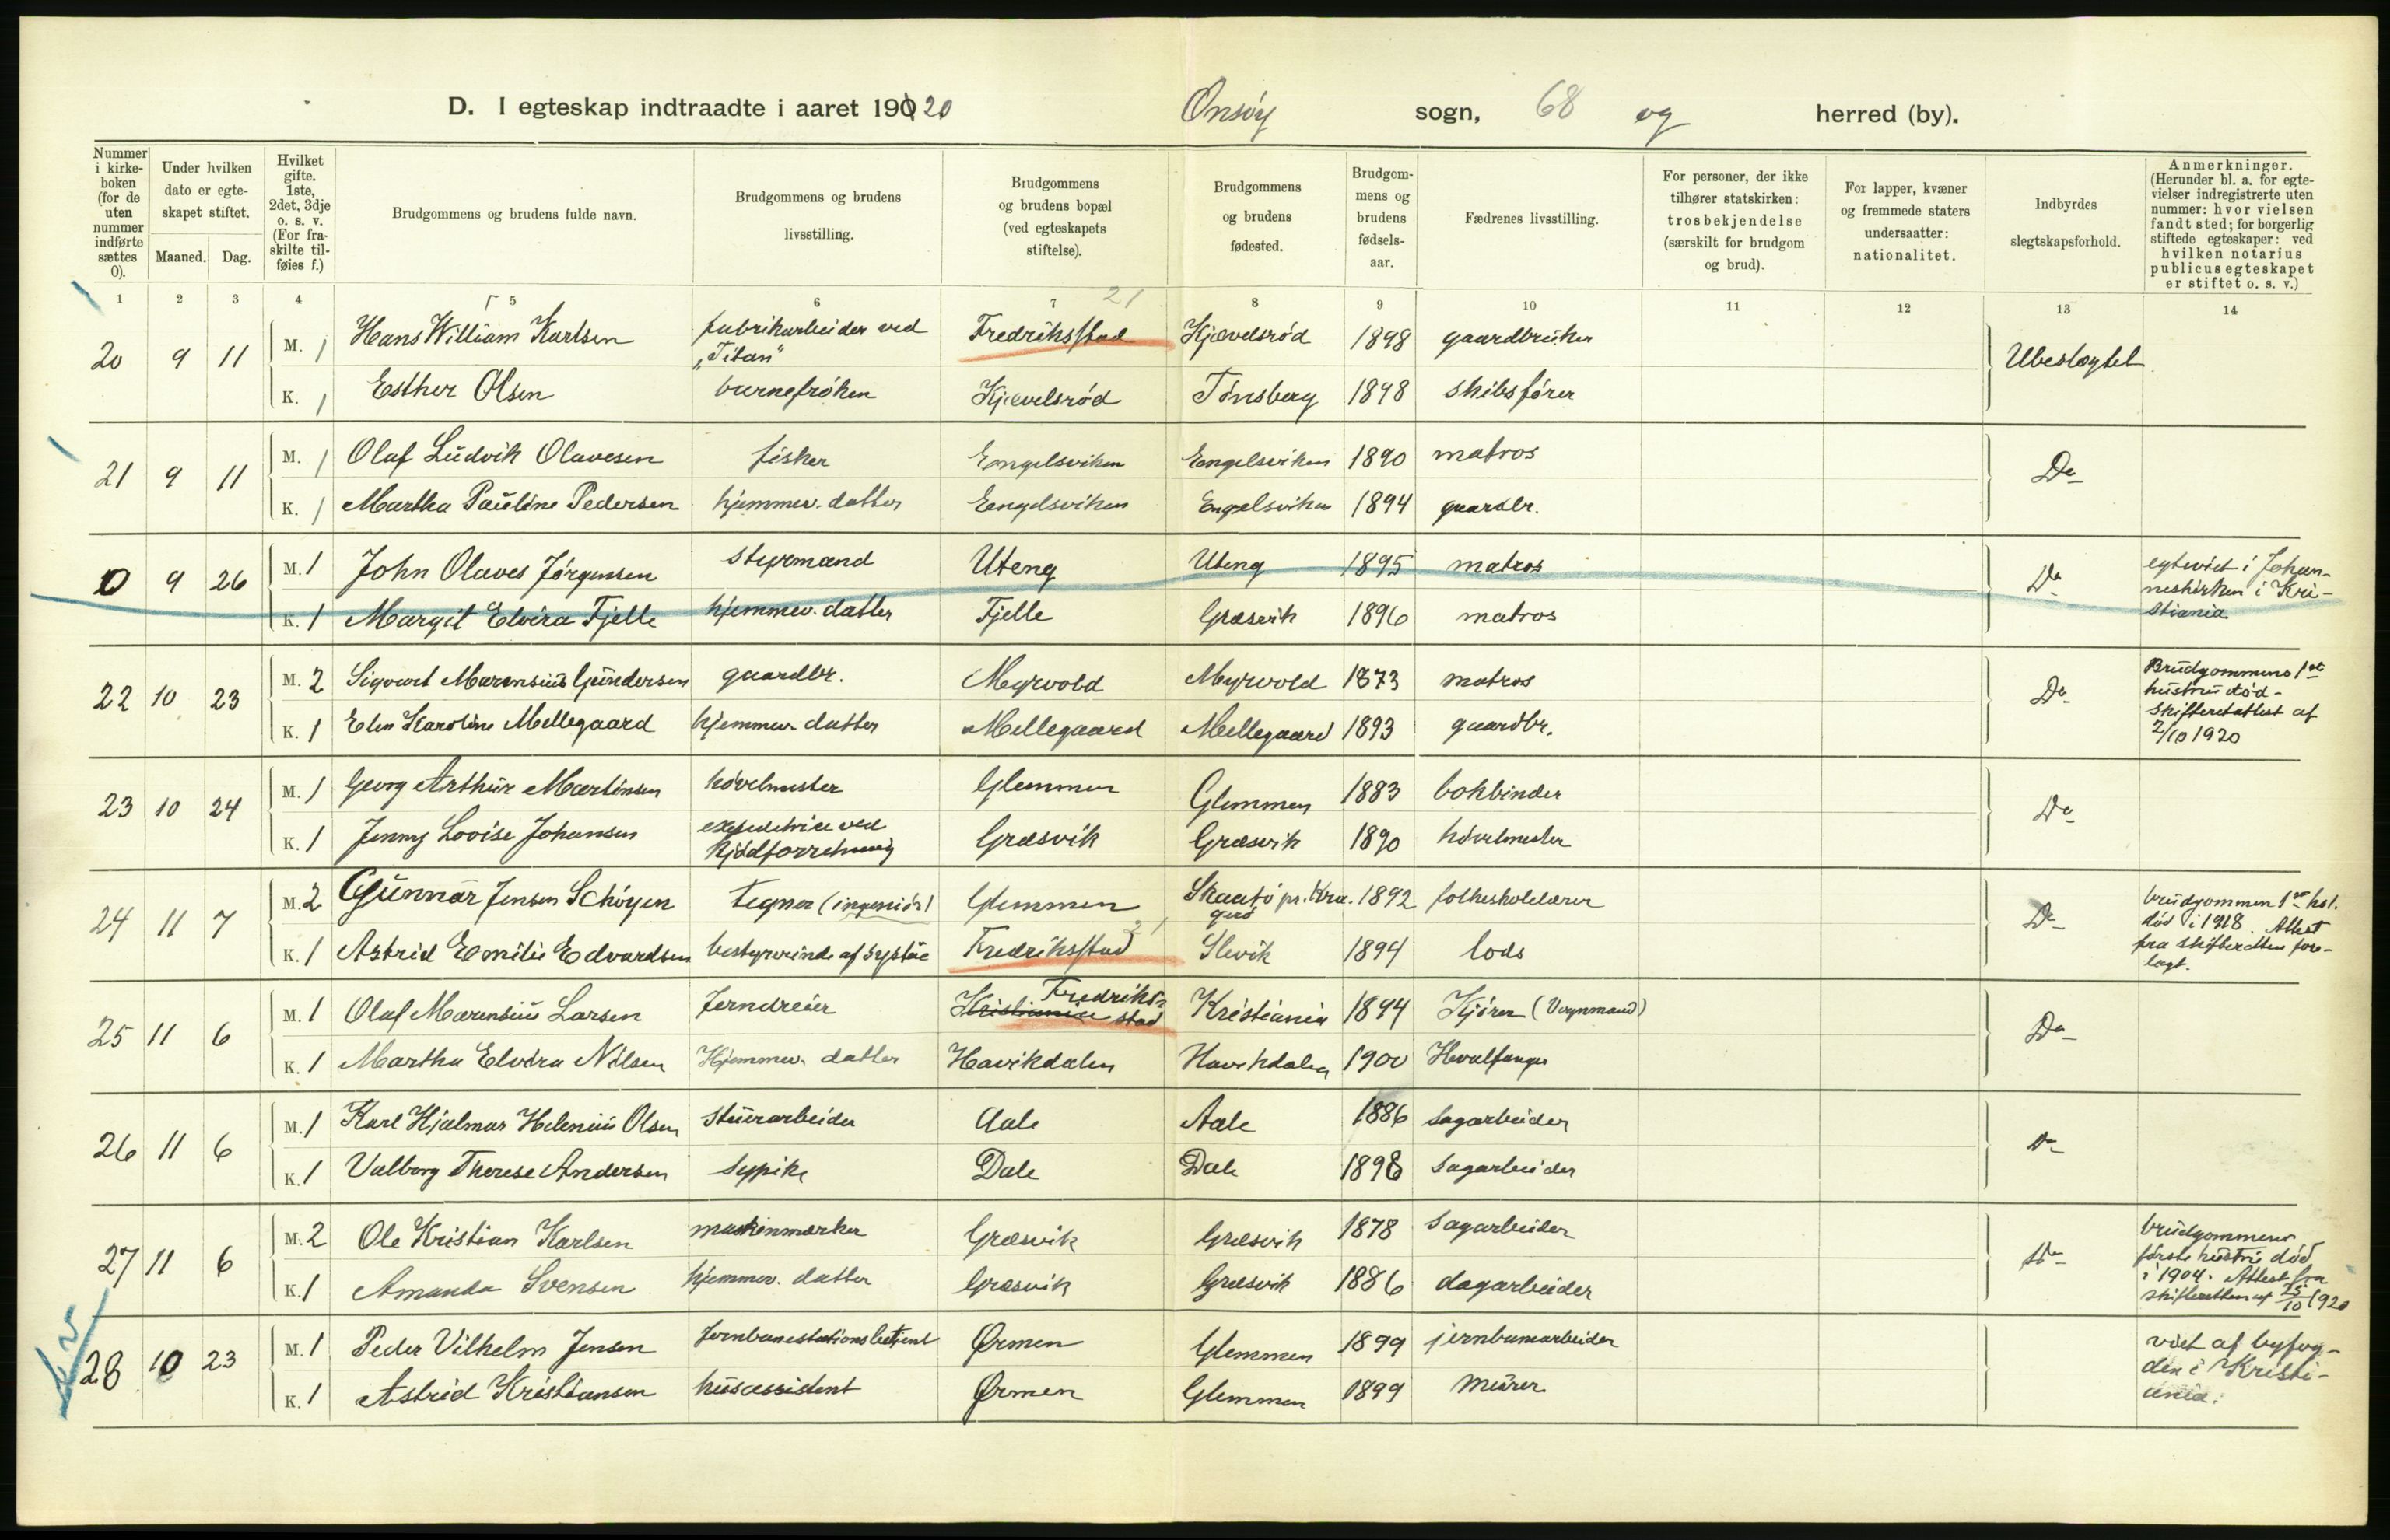 D. I egteskap indtraadte i aaret 1920 Onsøy sogn, 68 og herred (by).
Nummer i kirkeboken (for de uten nummer indførte sættes 0).
Under hvilken dato er egteskapet stiftet.
Maaned. Dag.
Hvilket gifte. 1ste, 2det, 3dje o. s. v. (For fraskilte tilføies f.)
Brudgommens og brudens fulde navn.
Brudgommens og brudens livsstilling.
Brudgommens og brudens bopæl (ved egteskapets stiftelse).
Brudgommens og brudens fødested.
Brudgommens og brudens fødselsaar.
Fædrenes livsstilling.
For personer, der ikke tilhører statskirken: trosbekjendelse (særskilt for brudgom og brud).
For lapper, kvæner og fremmede staters undersaatter: nationalitet.
Indbyrdes slegtskapsforhold.
Anmerkninger. (Herunder bl. a. for egtevielser indregistrerte uten nummer: hvor vielsen fandt sted; for borgerlig stiftede egteskaper: ved hvilken notarius publicus egteskapet er stiftet o. s. v.)
1 2 3 4 5 6 7 8 9 10 11 12 13 14
21
20 9 11 M. 1 Hans William Karlsen fabrikarbeider ved "Titan" Fredriksstad Kjævelsrød 1898 gaardbruker Ubeslegtet
K. 1 Esther Olsen barnefrøken Kjævelsrød Tønsberg 1898 skibsfører
21 9 11 M. 1 Olaf Ludvik Olavesen fisker Engelsviken Engelsviken 1890 matros Do
K. 1 Martha Pauline Pedersen hjemmev. datter Engelsviken Engelsviken 1894 gaardbr.
0 9 26 M. 1 John Olaves Jørgensen styrmand Uteng Uteng 1895 matros Do egteviet i Johanneskirken i Kristiania
K. 1 Margit Elvira Fjelle hjemmev. datter Fjelle Græsvik 1896 matros
22 10 23 M. 2 Sigvart Marensius Gundersen gaardbr. Myrvold Myrvold 1873 matros Do Brudgommens 1ste hustru død - skifteretattest af 2/10 1920
K. 1 Elen Karoline Mellegaard hjemmev. datter Mellegaard Mellegaard 1893 gaardbr.
23 10 24 M. 1 Georg Arthur Martinsen høvelmester Glemmen Glemmen 1883 bokbinder Do
K. 1 Jenny Lovise Johansen expeditrice ved kjødforretning Græsvik Græsvik 1890 høvelmester
24 11 7 M. 2 Gunnar Jensen Schøyen tegner (ingeniør) Glemmen Skaatø pr. Kra.gerø 1892 folkeskolelærer Do brudgommen 1ste hst. død i 1918. Attest fra skifteretten forelagt.
21
K. 1 Astrid Emilie Edvardsen bestyrerinde af systue Fredriksstad Slevik 1894 lods
25 11 6 M. 1 Olaf Marensius Larsen Jerndreier Kristiania Fredriksstad Kristiania 1894 Kjører (Vognmand) Do
K. 1 Martha Elvira Nilsen Hjemmev. datter Havikdalen Havikdalen 1900 Hvalfanger
26 11 6 M. 1 Karl Hjalmar Helenius Olsen stuerarbeider Aale Aale 1886 sagarbeider Do
K. 1 Valborg Therese Andersen sypike Dale Dale 1898 sagarbeider
27 11 6 M. 2 Ole Kristian Karlsen Græsvik Græsvik 1878 sagarbeider Do brudgommens første hustru død i 1904. Attest fra skifteretten af 25/10 1920
K. 1 Amanda Svensen hjemmev. datter Græsvik Græsvik 1886 dagarbeider
28 10 23 M. 1 Peder Vilhelm Jensen Jernbanestationsbetjent Ørmen Glemmen 1899 jernbanearbeider viet af byfogden i Kristiania.
K. 1 Astrid Kristiansen husassistent Ørmen Glemmen 1899 murer